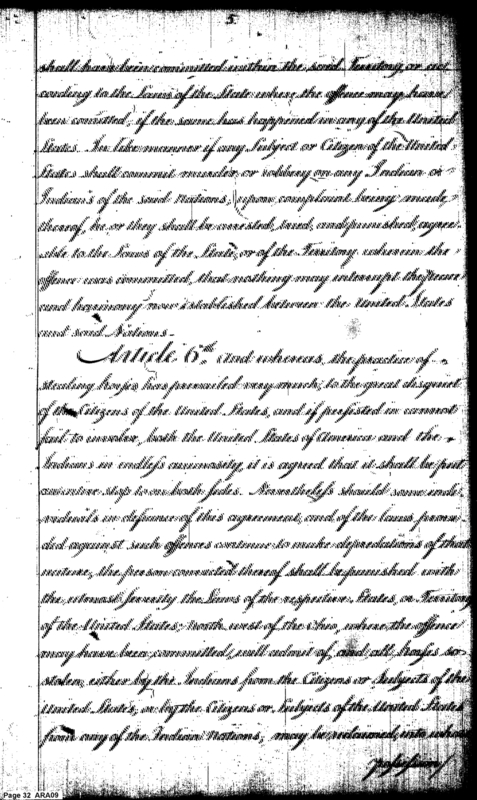 5
shall have been committed within the said Territory, or ac
cording to the Laws of the State where the offence may have
been committed, if the same has happened in any of the United
States. In like manner if any Subject or Citizen of the United
States shall commit murder, or robbery on any Indian or
Indians of the said Nations, upon complaint being made
thereof, he or they shall be arrested, tried, and punished, agree
able to the Laws of the State, or of the Territory wherein the
offence was committed, that nothing may interrupt the peace
and harmony now established between the United States
and said Nations.
Article 6th. And whereas, the practice of
stealing horses has prevailed very much, to the great disquiet
of the Citizens of the United States, and if persisted in cannot
fail to involve, both the United States of America and the
Indians in endless animosity, it is agreed that it shall be put
an entire stop to on both sides. Nevertheless should some indi
viduals in defiance of this agreement, and of the laws provi
ded against such offences continue to make depredations of that
nature, the person convicted thereof shall be punished with
the utmost severity the Laws of the respective States, or Territory
of the United States, North west of the Ohio, where the offence
may have been committed, will admit of, and all horses so
stolen, either by the Indians from the Citizens or Subjects of the
United States, or by the Citizens or Subjects of the United States
from any of the Indian Nations, may be reclaimed, into whose
possession
Page 32 ARA09